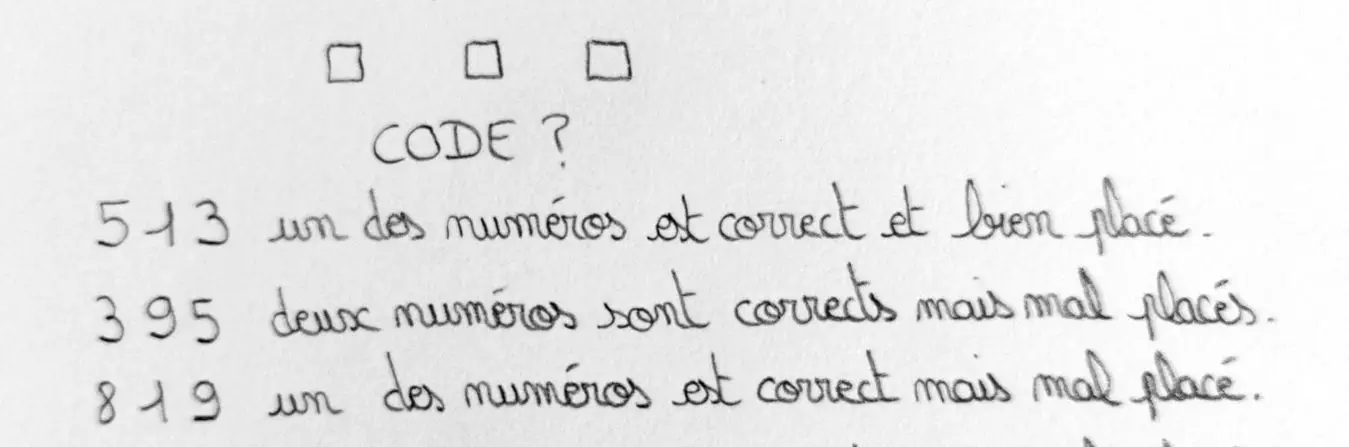 CODE ?
513 un des numéros est correct et bien placé.
395 deux numéros sont corrects mais mal placés.
819 un des numéros est correct mais mal placé.